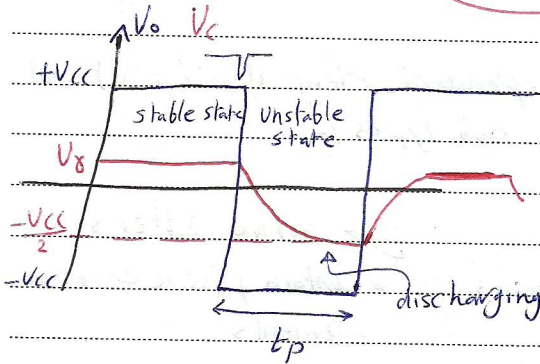 Vo Vc
+Vcc
stable state unstable
state
Vγ
-Vcc/2
-Vcc
discharging
tp